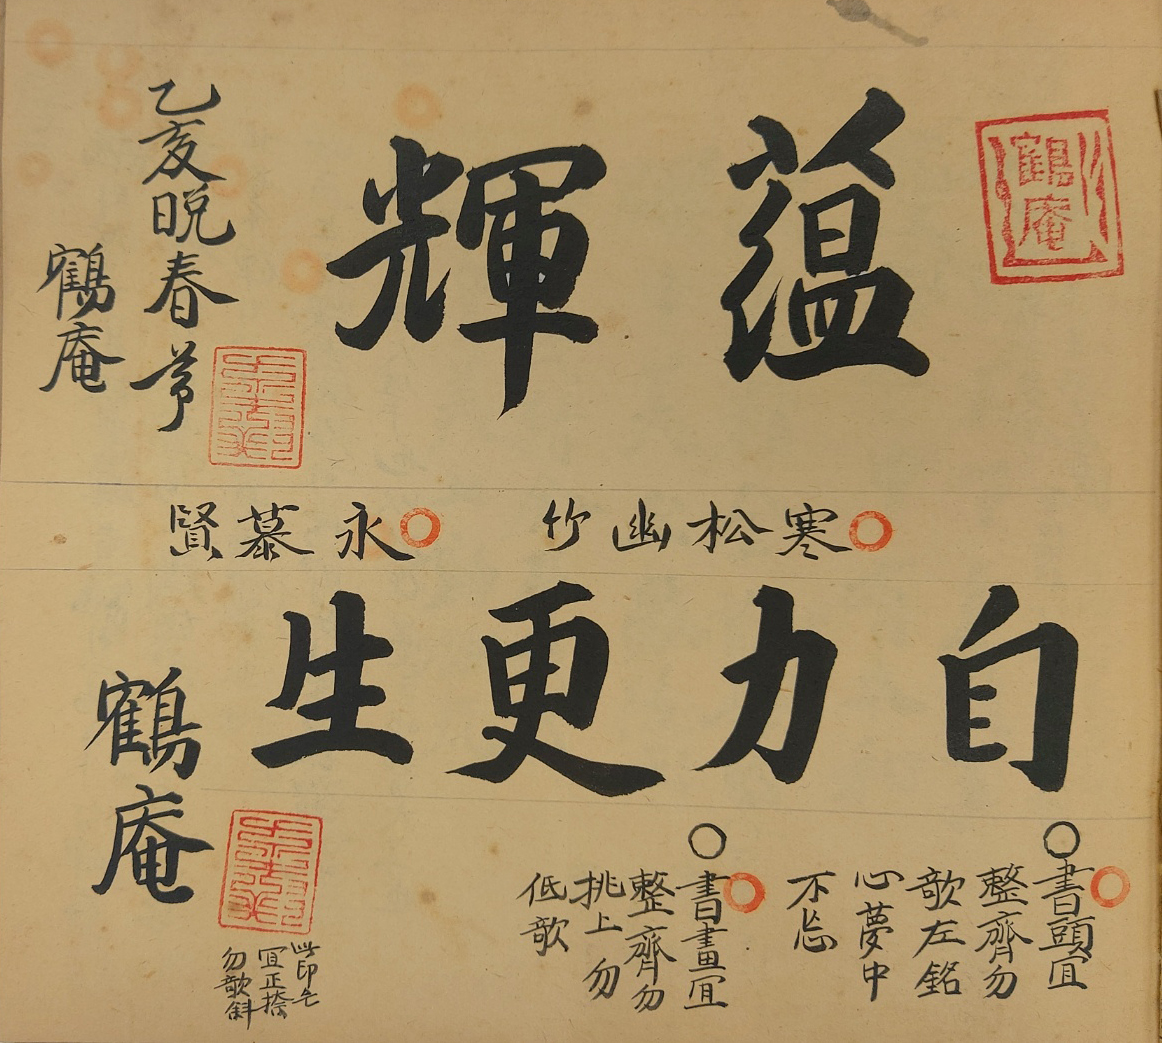 鶴庵
蘊輝
乙亥晩春節
鶴庵
寒松幽竹
永慕賢
自力更生
鶴庵
書頭宜
整齊勿
歌左銘
心夢中
不忘
書畫宜
整齊勿
挑上勿
低歌
此印宜
宜正捺
勿歌斜